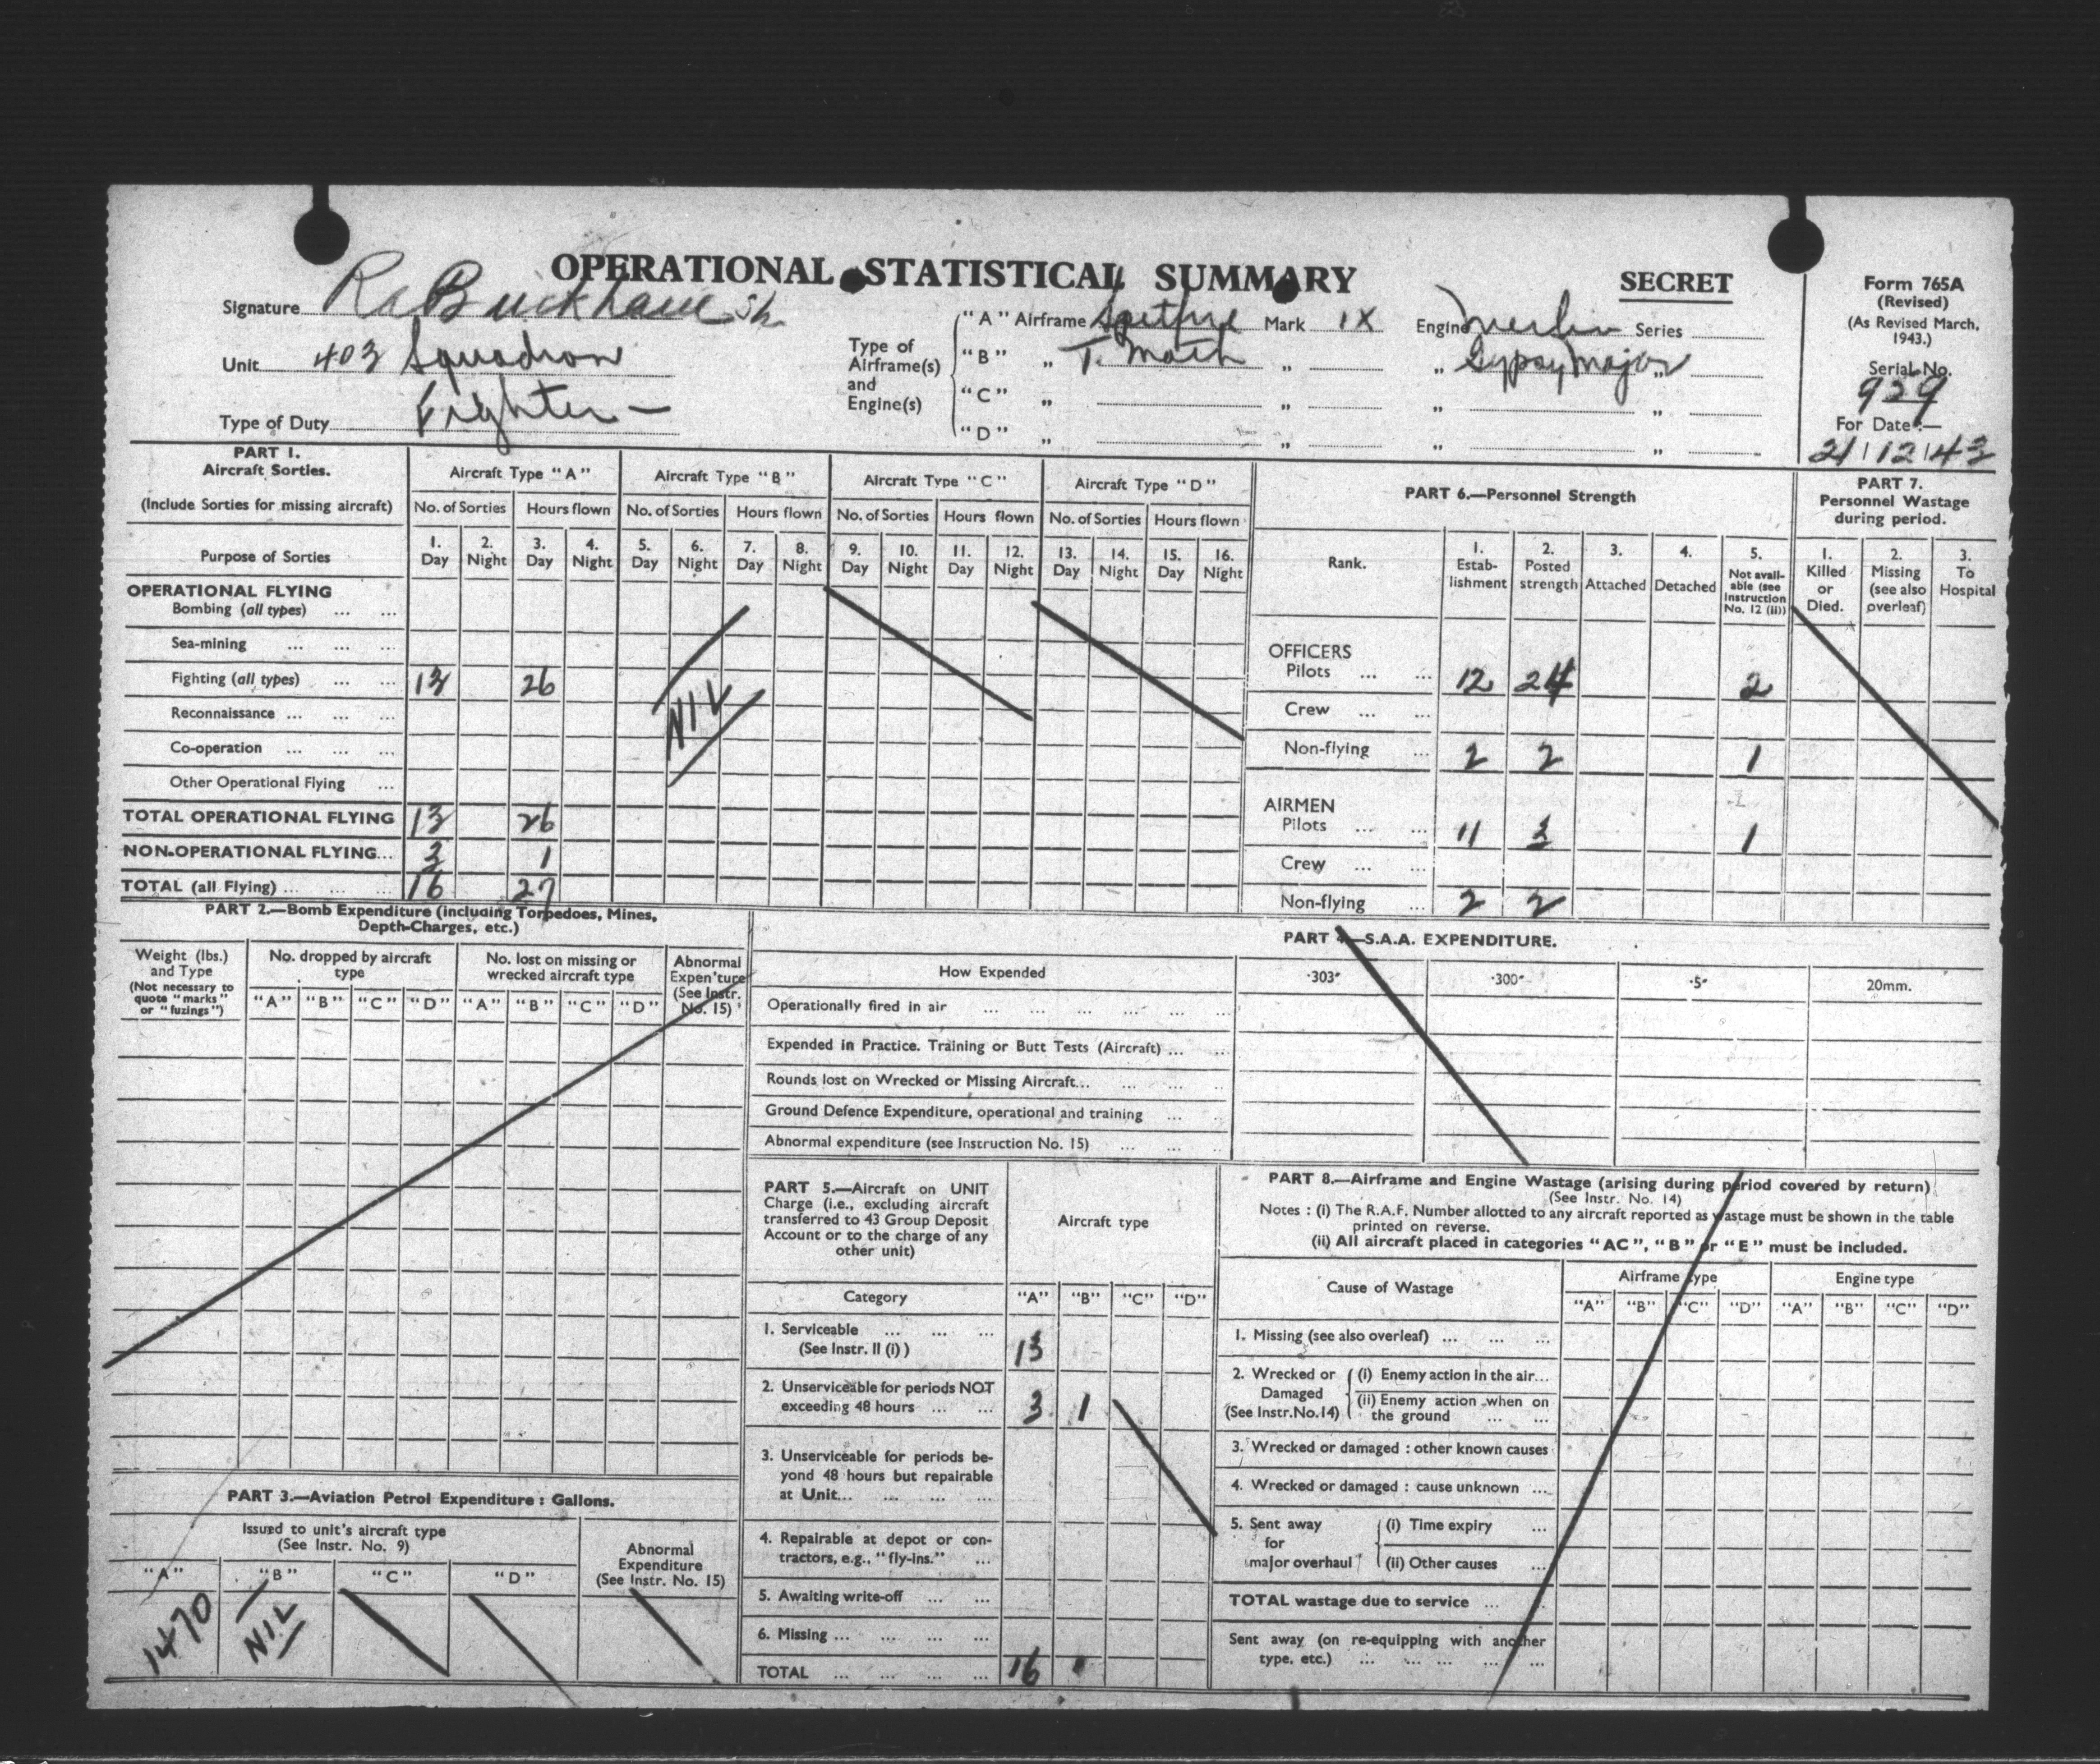 OPERATIONAL STATISTICAL SUMMARY
SECRET
Form 765A
(Revised)
(As Revised March, 1943.)
Serial No.
929
For Date :—
21/12/43
Signature
Unit 403 Squadron
Type of Duty Fighter —
Type of Airframe(s) and Engine(s)
"A" Airframe Spitfire Mark IX Engine Merlin Series
"B" „ T. Moth „ „ Gypsy Major „
"C" „ „ „ „
"D" „ „ „ „
PART 1.
Aircraft Sorties.
(Include Sorties for missing aircraft)
Purpose of Sorties
Aircraft Type "A" Aircraft Type "B" Aircraft Type "C" Aircraft Type "D"
No. of Sorties Hours flown No. of Sorties Hours flown No. of Sorties Hours flown No. of Sorties Hours flown
1. Day 2. Night 3. Day 4. Night 5. Day 6. Night 7. Day 8. Night 9. Day 10. Night 11. Day 12. Night 13. Day 14. Night 15. Day 16. Night
OPERATIONAL FLYING
Bombing (all types) ... ...
Sea-mining ... ... ...
Fighting (all types) ... ... 13 26
NIL
Reconnaissance ... ... ...
Co-operation ... ... ...
Other Operational Flying ...
TOTAL OPERATIONAL FLYING 13 26
NON-OPERATIONAL FLYING... 3 1
TOTAL (all Flying) ... ... ... 16 27
PART 6.—Personnel Strength
Rank. 1. Establishment 2. Posted strength 3. Attached 4. Detached 5. Not available (see Instruction No. 12 (ii))
OFFICERS
Pilots ... ... 12 24 2
Crew ... ...
Non-flying ... 2 2 1
AIRMEN
Pilots ... ... 11 3 1
Crew ... ...
Non-flying ... 2 2
PART 7.
Personnel Wastage during period.
1. Killed or Died. 2. Missing (see also overleaf) 3. To Hospital
PART 2.—Bomb Expenditure (including Torpedoes, Mines, Depth-Charges, etc.)
Weight (lbs.) and Type (Not necessary to quote "marks" or "fuzings")
No. dropped by aircraft type
No. lost on missing or wrecked aircraft type
Abnormal Expen'ture (See Instr. No. 15)
"A" "B" "C" "D" "A" "B" "C" "D"
PART 4.—S.A.A. EXPENDITURE.
How Expended ·303" ·300" ·5" 20mm.
Operationally fired in air ... ... ... ... ... ...
Expended in Practice. Training or Butt Tests (Aircraft) ... ...
Rounds lost on Wrecked or Missing Aircraft... ... ... ...
Ground Defence Expenditure, operational and training ... ...
Abnormal expenditure (see Instruction No. 15) ... ... ...
PART 3.—Aviation Petrol Expenditure : Gallons.
Issued to unit's aircraft type
(See Instr. No. 9)
Abnormal Expenditure (See Instr. No. 15)
"A" "B" "C" "D"
1470 NIL
PART 5.—Aircraft on UNIT Charge (i.e., excluding aircraft transferred to 43 Group Deposit Account or to the charge of any other unit)
Aircraft type
Category "A" "B" "C" "D"
1. Serviceable ... ... ... (See Instr. II (i) ) 13
2. Unserviceable for periods NOT exceeding 48 hours ... ... 3 1
3. Unserviceable for periods beyond 48 hours but repairable at Unit... ... ... ...
4. Repairable at depot or contractors, e.g., "fly-ins." ...
5. Awaiting write-off ... ...
6. Missing ... ... ... ...
TOTAL ... ... ... ... 16 1
PART 8.—Airframe and Engine Wastage (arising during period covered by return)
(See Instr. No. 14)
Notes : (i) The R.A.F. Number allotted to any aircraft reported as wastage must be shown in the table printed on reverse.
(ii) All aircraft placed in categories "AC", "B" or "E" must be included.
Cause of Wastage Airframe type Engine type
"A" "B" "C" "D" "A" "B" "C" "D"
1. Missing (see also overleaf) ... ... ...
2. Wrecked or Damaged (See Instr.No.14) (i) Enemy action in the air...
(ii) Enemy action when on the ground ... ...
3. Wrecked or damaged : other known causes
4. Wrecked or damaged : cause unknown ...
5. Sent away for major overhaul (i) Time expiry ...
(ii) Other causes ...
TOTAL wastage due to service ... ...
Sent away (on re-equipping with another type, etc.) ... ... ... ... ...